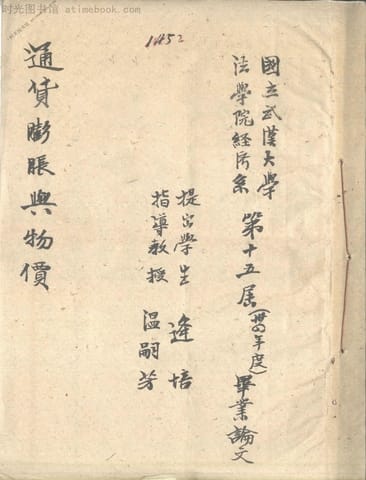 时光图书馆 atimebook.com
1452
國立武漢大學
法學院經济系
第十五届(卅四年度)畢業論文
提出學生 逄培
指導教授 温嗣芳
通貨膨脹與物價